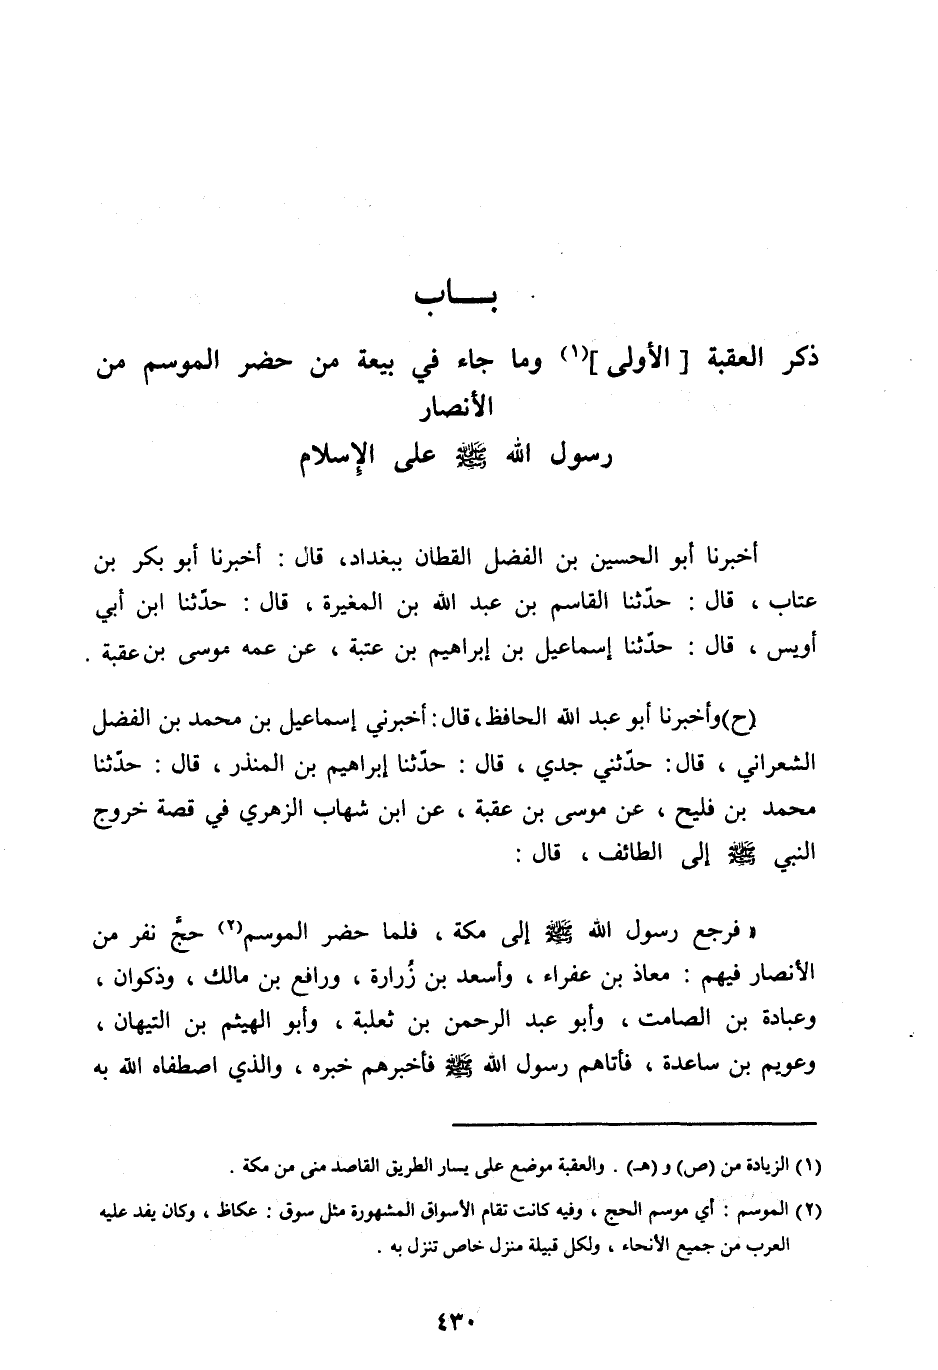 بـــاب
ذكر العقبة [ الأولى ](١) وما جاء في بيعة من حضر الموسم من
الأنصار
رسول الله ﷺ على الإسلام
أخبرنا أبو الحسين بن الفضل القطان ببغداد، قال : أخبرنا أبو بكر بن
عتاب ، قال : حدّثنا القاسم بن عبد الله بن المغيرة ، قال : حدّثنا ابن أبي
أويس ، قال : حدّثنا إسماعيل بن إبراهيم بن عتبة ، عن عمه موسى بن عقبة .
(ح) وأخبرنا أبو عبد الله الحافظ، قال : أخبرني إسماعيل بن محمد بن الفضل
الشعراني ، قال : حدّثني جدي ، قال : حدّثنا إبراهيم بن المنذر ، قال : حدّثنا
محمد بن فليح ، عن موسى بن عقبة ، عن ابن شهاب الزهري في قصة خروج
النبي ﷺ إلى الطائف ، قال :
« فرجع رسول الله ﷺ إلى مكة ، فلما حضر الموسم(٢) حجَّ نفر من
الأنصار فيهم : معاذ بن عفراء ، وأسعد بن زُرارة ، ورافع بن مالك ، وذكوان ،
وعبادة بن الصامت ، وأبو عبد الرحمن بن ثعلبة ، وأبو الهيثم بن التيهان ،
وعويم بن ساعدة ، فأتاهم رسول الله ﷺ فأخبرهم خبره ، والذي اصطفاه الله به
(١) الزيادة من (ص) و (هـ) . والعقبة موضع على يسار الطريق القاصد منى من مكة .
(٢) الموسم : أي موسم الحج ، وفيه كانت تقام الأسواق المشهورة مثل سوق : عكاظ ، وكان يفد عليه
العرب من جميع الأنحاء ، ولكل قبيلة منزل خاص تنزل به .
٤٣٠